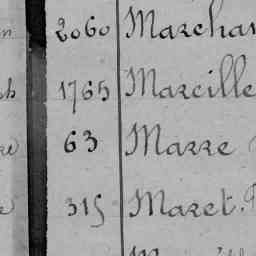 n 2060 Marchan
ch 1765 Marcille
re 63 Marre
e 315 Maret.